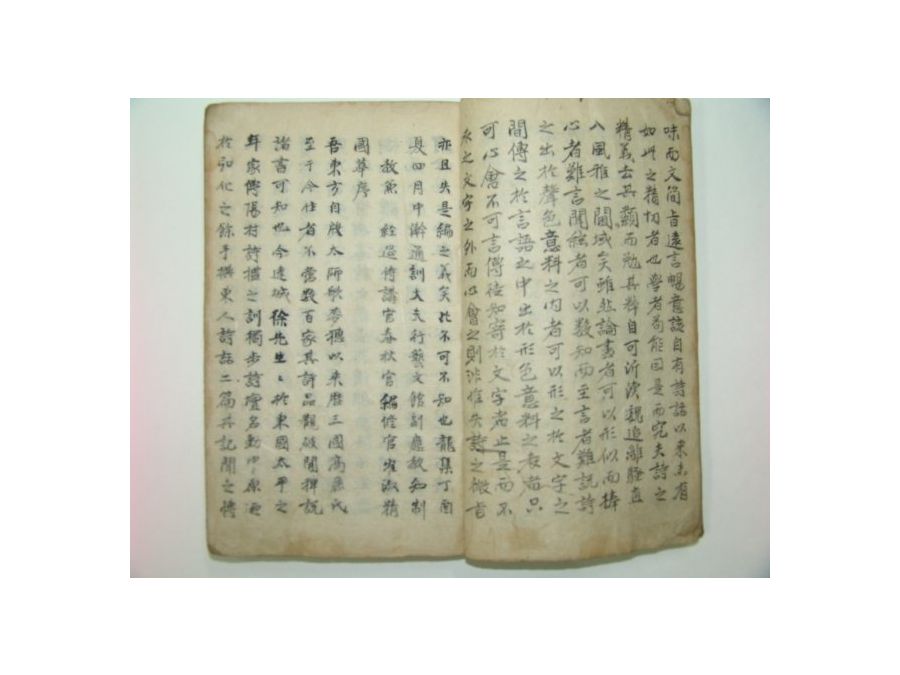 味而文簡旨遠言暢意該自有詩話以來未有
如此之精切者也學者苟能因是而究夫詩之
精義去其纇而勉其粹自可泝漢魏追離騷直
入風雅之閫域矣雖然論畫者可以形似而捧
心者難言聞絃者可以數知而至言者難說詩
之出於聲色意料之內者可以形之於文字之
間傳之於言語之中出於形色意料之表者只
可心會不可言傳徒知寄於文字者止是而不
求之文字之外而心會之則非惟失詩之微旨
亦且失是編之義矣此不可不知也龍集丁酉
夏四月中澣通訓大夫行藝文館副應敎知制
敎兼 經筵侍講官春秋官編修官崔淑精
國華序
吾東方自殷太師歌麥穗以來歷三國高麗氏
至于今作者不啻數百家其詩品觀破閑稗說
諸書可知也今達城徐先生先生於東國太平之
家傳陽村詩禮之訓獨步詩壇名動中原
於弘化之餘手撰東人詩話二篇其記聞之博